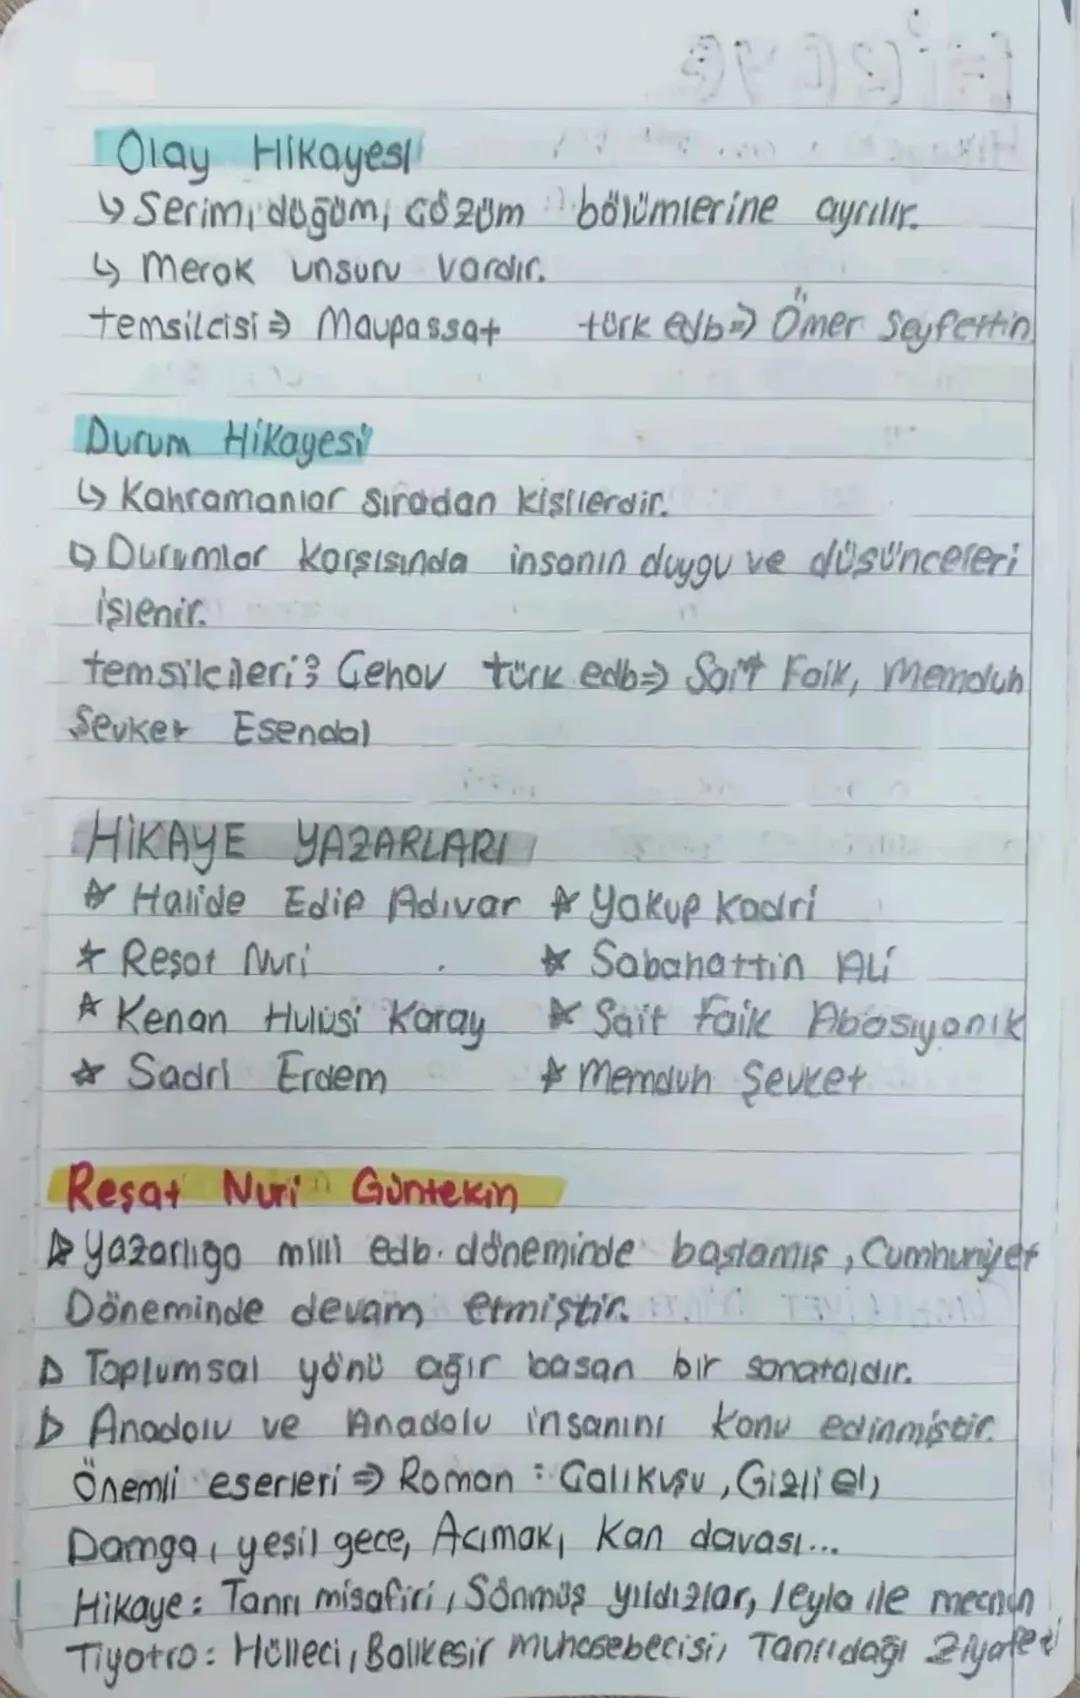 Olay Hikayesi
↳ Serim, düğüm, çözüm bölümlerine ayrılır.
↳ Merak unsuru vardır.
temsilcisi ⇒ Maupassat türk edb ⇒ Ömer Seyfettin
Durum Hikayesi
↳ Kahramanlar sıradan kişilerdir.
↳ Durumlar karşısında insanın duygu ve düşünceleri
işlenir.
temsilcileri: Çehov türk edb ⇒ Sait Faik, Memduh
Şevket Esendal
HİKAYE YAZARLARI
☆ Halide Edip Adıvar ☆ Yakup Kadri
☆ Reşat Nuri ☆ Sabahattin Ali
☆ Kenan Hulusi Koray ☆ Sait Faik Abasıyanık
☆ Sadri Erdem ☆ Memduh Şevket
Reşat Nuri Güntekin
▷ Yazarlığa milli edb. döneminde başlamış, Cumhuriyet
Döneminde devam etmiştir.
▷ Toplumsal yönü ağır basan bir sanatçıdır.
▷ Anadolu ve Anadolu insanını konu edinmiştir.
Önemli eserleri ⇒ Roman: Çalıkuşu, Gizli el,
Damga, yeşil gece, Acımak, Kan davası...
Hikaye: Tanrı misafiri, Sönmüş yıldızlar, leyla ile mecnun
Tiyatro: Hülleci, Balıkesir muhasebecisi, Tanrıdağı Ziyafeti